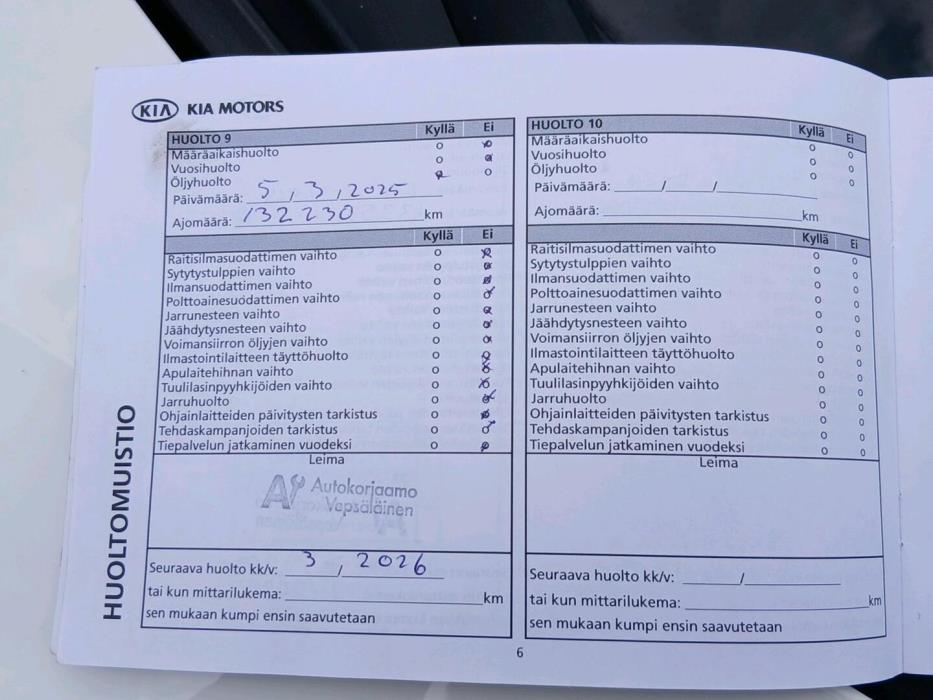 KIA KIA MOTORS
HUOLTO 9 Kyllä Ei
Määräaikaishuolto o o
Vuosihuolto o o
Öljyhuolto o o
Päivämäärä: 5 / 3 / 2025
Ajomäärä: 132 230 km
Kyllä Ei
Raitisilmasuodattimen vaihto o o
Sytytystulppien vaihto o o
Ilmansuodattimen vaihto o o
Polttoainesuodattimen vaihto o o
Jarrunesteen vaihto o o
Jäähdytysnesteen vaihto o o
Voimansiirron öljyjen vaihto o o
Ilmastointilaitteen täyttöhuolto o o
Apulaitehihnan vaihto o o
Tuulilasinpyyhkijöiden vaihto o o
Jarruhuolto o o
Ohjainlaitteiden päivitysten tarkistus o o
Tehdaskampanjoiden tarkistus o o
Tiepalvelun jatkaminen vuodeksi o o
Leima
Autokorjaamo
Vepsäläinen
Seuraava huolto kk/v: 3 / 2026
tai kun mittarilukema: km
sen mukaan kumpi ensin saavutetaan
HUOLTO 10 Kyllä Ei
Määräaikaishuolto o o
Vuosihuolto o o
Öljyhuolto o o
Päivämäärä: / /
Ajomäärä: km
Kyllä Ei
Raitisilmasuodattimen vaihto o o
Sytytystulppien vaihto o o
Ilmansuodattimen vaihto o o
Polttoainesuodattimen vaihto o o
Jarrunesteen vaihto o o
Jäähdytysnesteen vaihto o o
Voimansiirron öljyjen vaihto o o
Ilmastointilaitteen täyttöhuolto o o
Apulaitehihnan vaihto o o
Tuulilasinpyyhkijöiden vaihto o o
Jarruhuolto o o
Ohjainlaitteiden päivitysten tarkistus o o
Tehdaskampanjoiden tarkistus o o
Tiepalvelun jatkaminen vuodeksi o o
Leima
Seuraava huolto kk/v: /
tai kun mittarilukema: km
sen mukaan kumpi ensin saavutetaan
HUOLTOMUISTIO
6